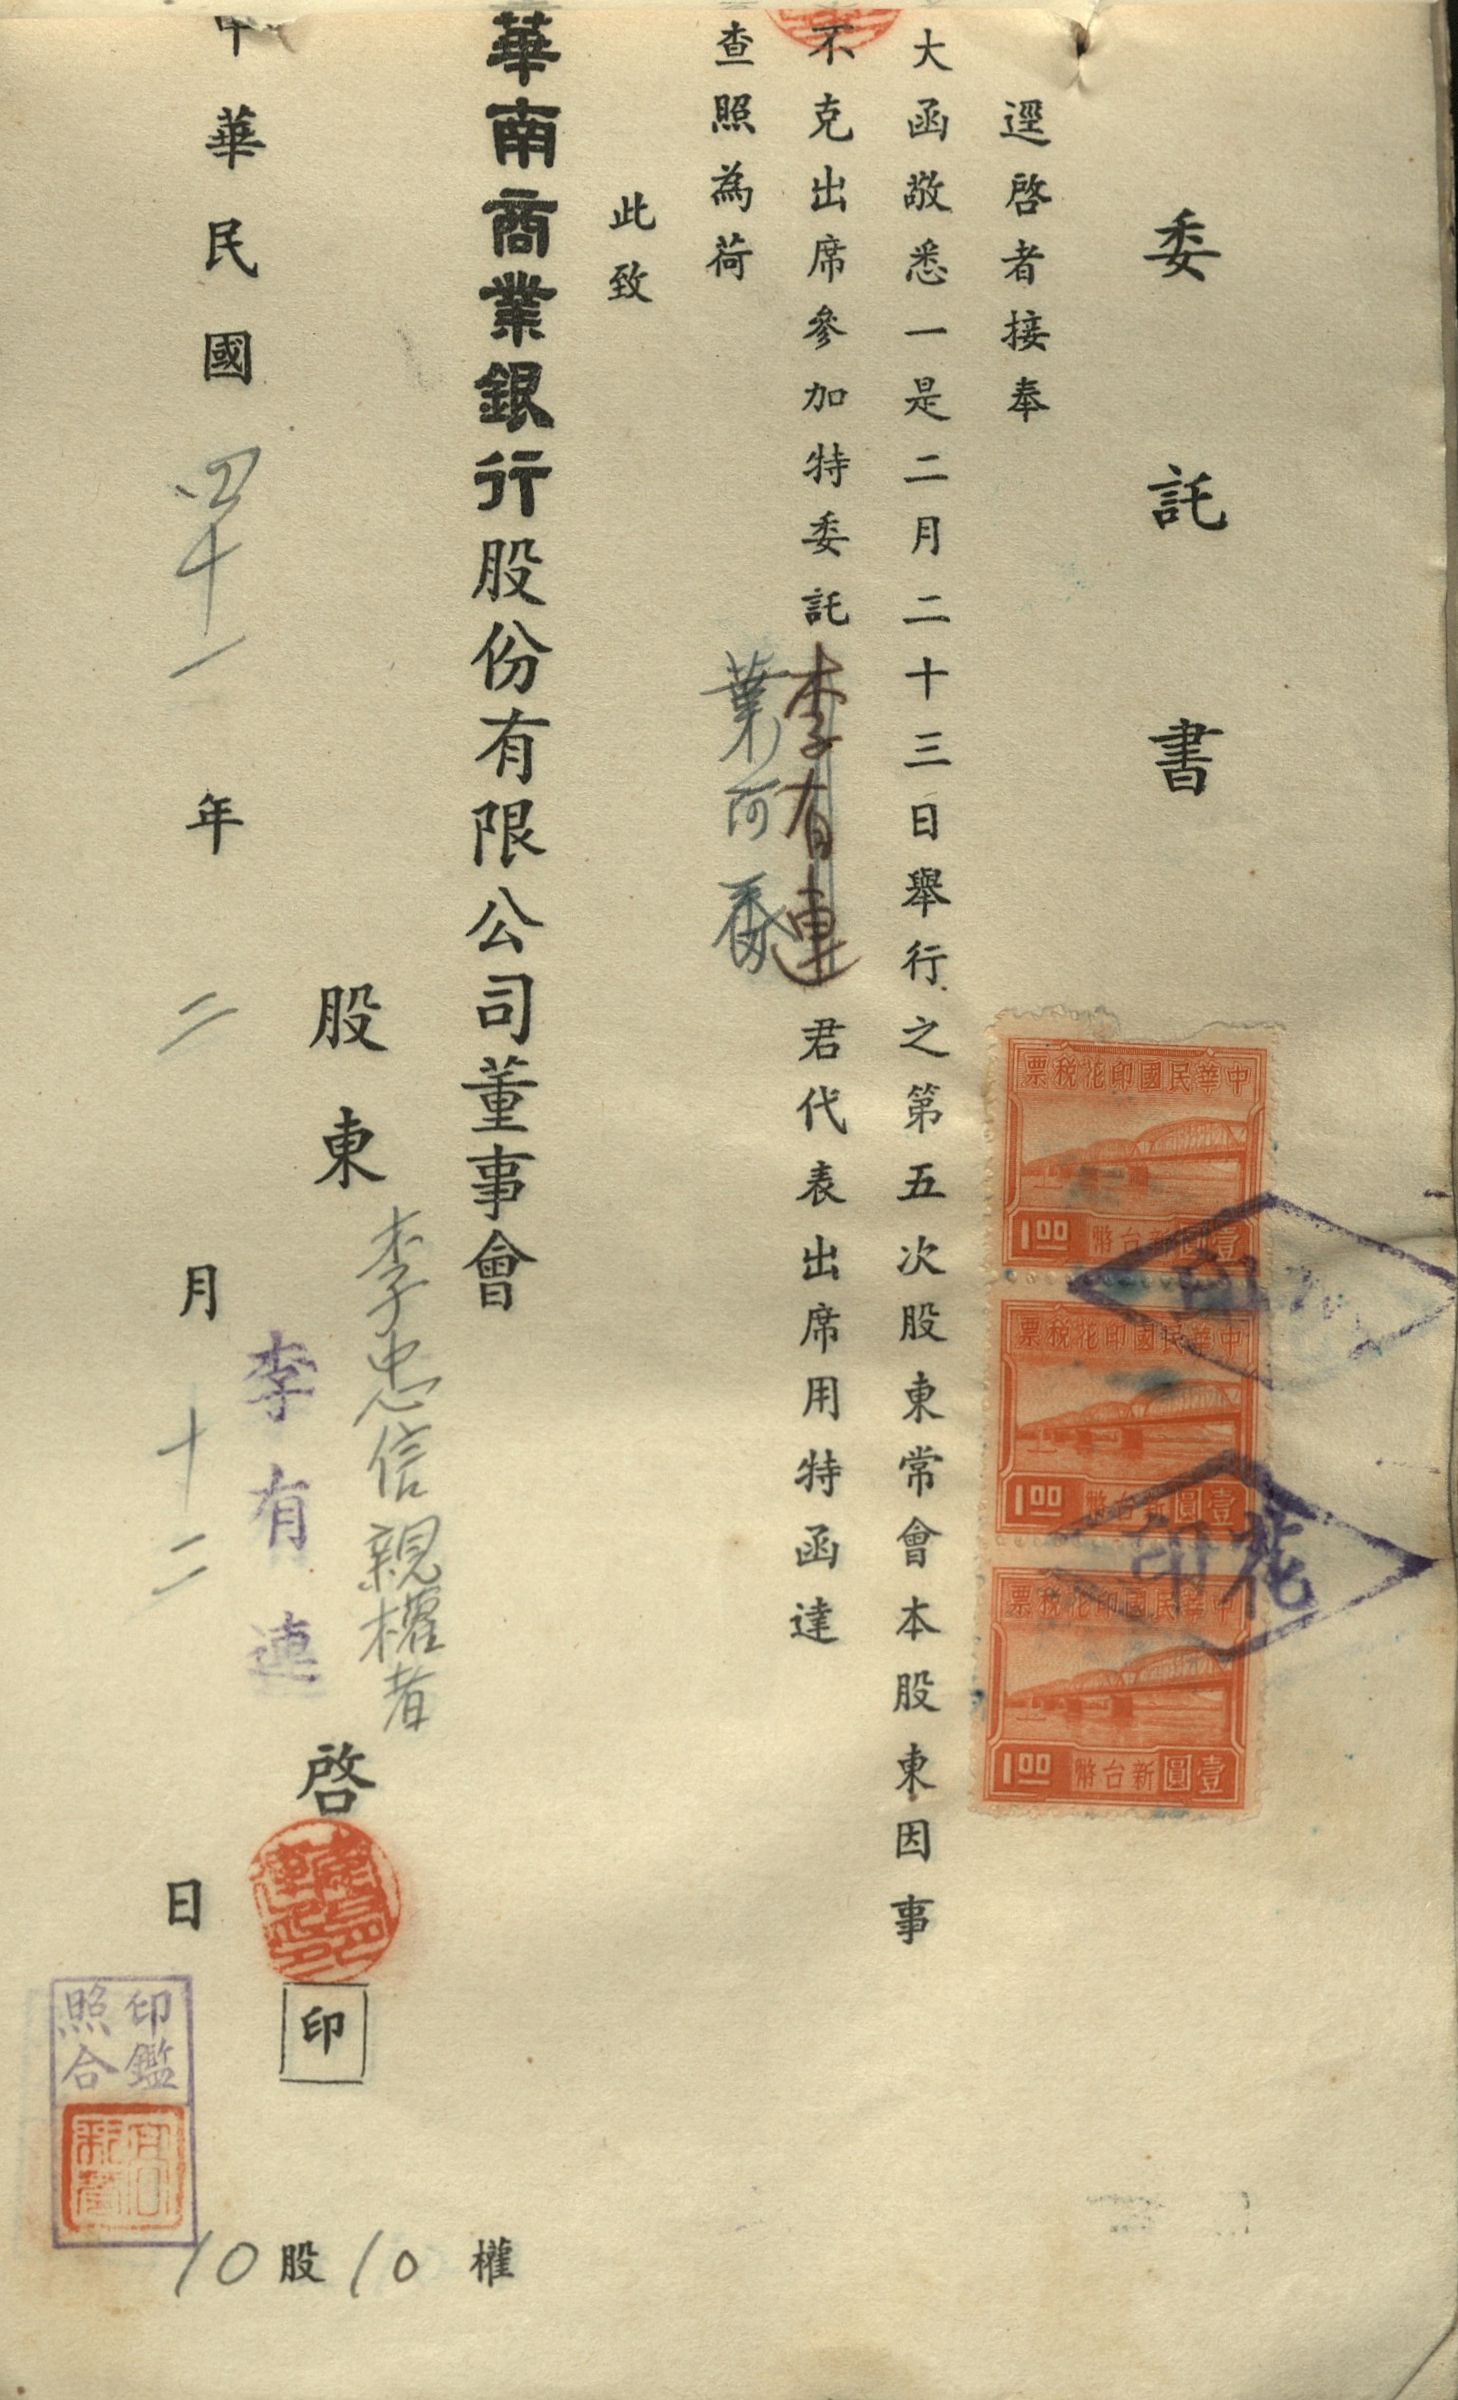 委託書
逕啓者接奉
大函敬悉一是二月二十三日舉行之第五次股東常會本股東因事
不克出席參加特委託李有連君代表出席用特函達
葉阿
查照為荷
此致
華南商業銀行股份有限公司董事會
股東李忠信親權者啓
李有連
印
中華民國四十一年二月十二日
印鑑
照合
10股10權
中華民國印花稅票
1.00 壹圓新台幣
中華民國印花稅票
1.00 壹圓新台幣
中華民國印花稅票
1.00 壹圓新台幣
花印
花印